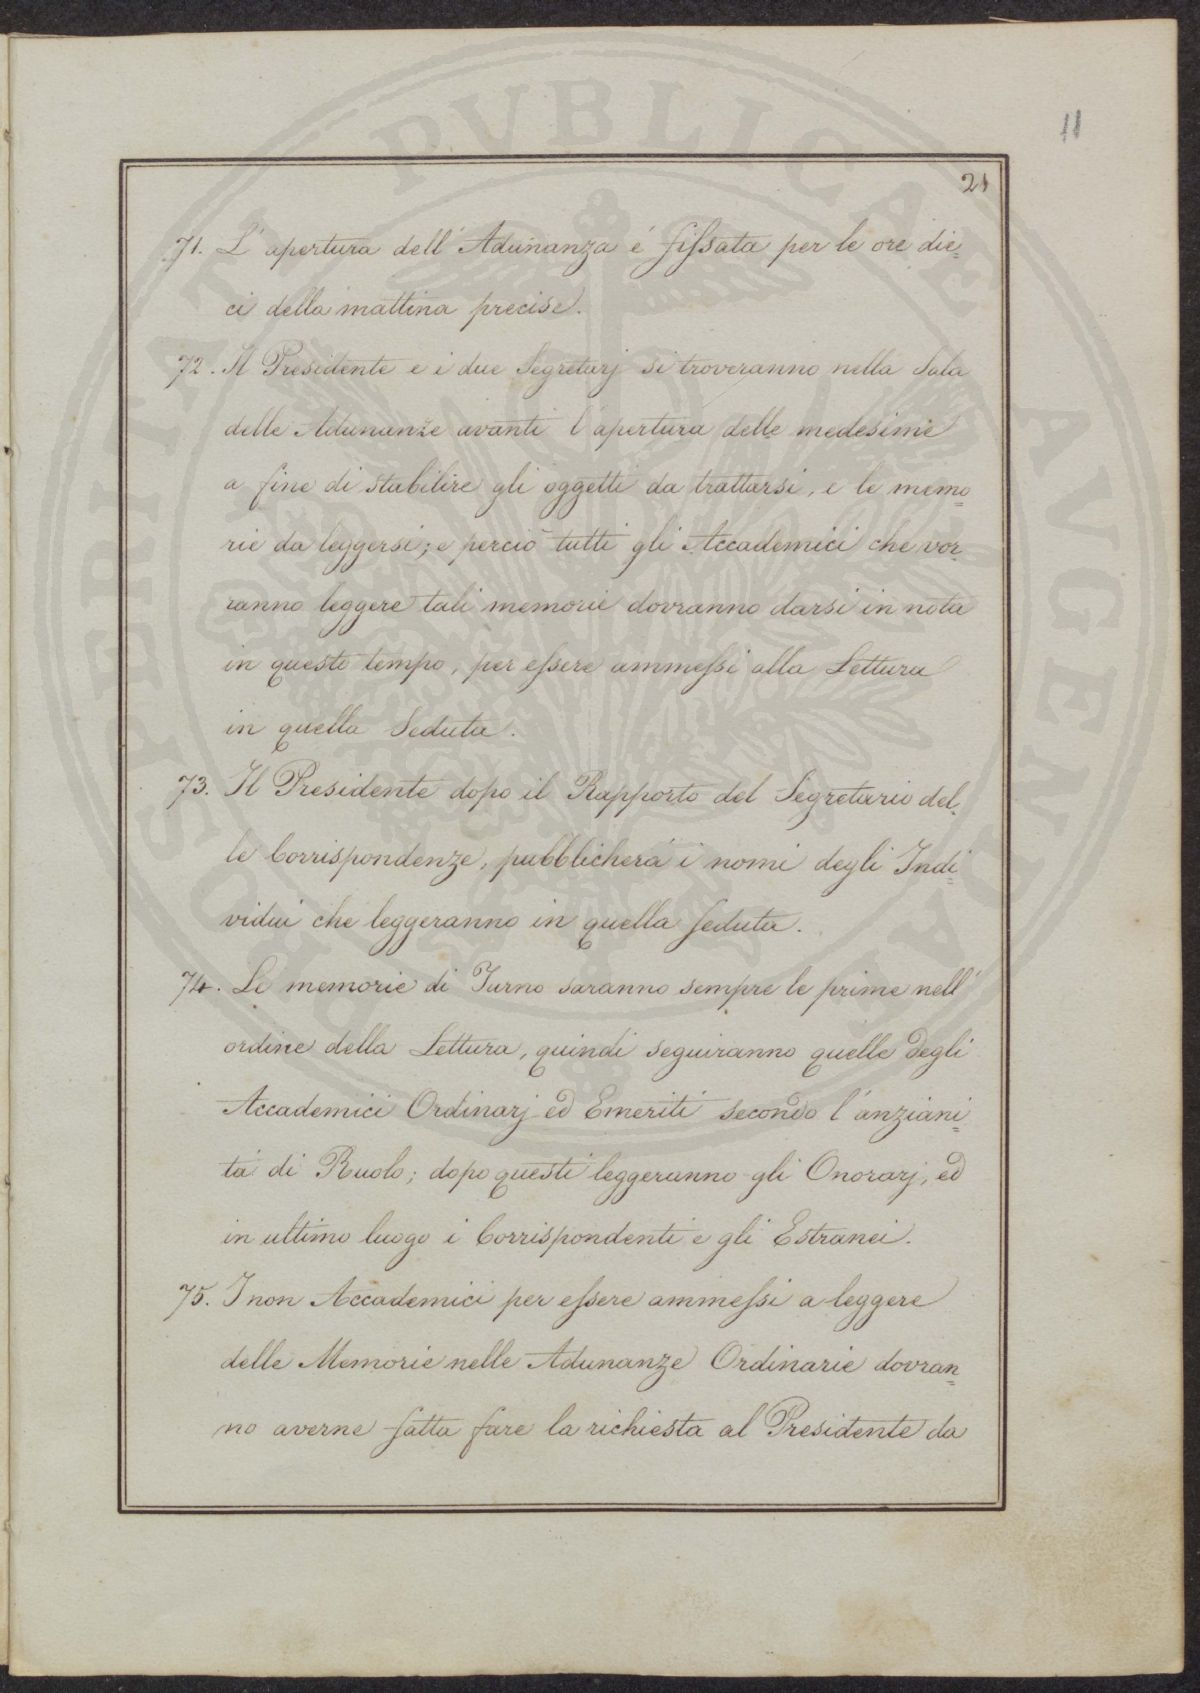 11
21
71. L'apertura dell'Adunanza é fissata per le ore die=
ci della mattina precise.
72. Il Presidente e i due Segretarj si troveranno nella Sala
delle Adunanze avanti l'apertura delle medesime
a fine di stabilire gli oggetti da trattarsi, e le memo=
rie da leggersi; e perciò tutti gli Accademici che vor=
ranno leggere tali memorie dovranno darsi in nota
in questo tempo, per essere ammessi alla Lettura
in quella Seduta.
73. Il Presidente dopo il Rapporto del Segretario del=
le Corrispondenze, pubblicherá i nomi degli Indi=
vidui che leggeranno in quella seduta.
74. Le memorie di Turno saranno sempre le prime nell'
ordine della Lettura, quindi seguiranno quelle degli
Accademici Ordinarj ed Emeriti secondo l'anziani=
tá di Ruolo; dopo questi leggeranno gli Onorarj, ed
in ultimo luogo i Corrispondenti e gli Estranei.
75. I non Accademici per essere ammessi a leggere
delle Memorie nelle Adunanze Ordinarie dovran=
no averne fatta fare la richiesta al Presidente da